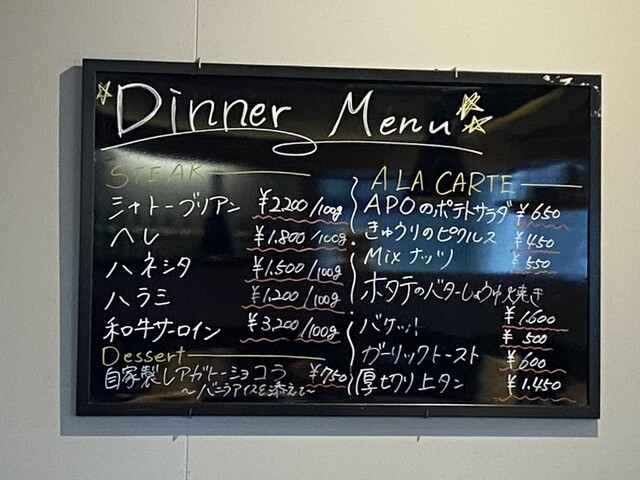 Dinner Menu
STEAK
シャトーブリアン ¥2.200/100g
ヘレ ¥1.800/100g
ハネシタ ¥1.500/100g
ハラミ ¥1.200/100g
和牛サーロイン ¥3.200/100g
Dessert
自家製レアガトーショコラ ¥750
〜バニラアイスを添えて〜
A LA CARTE
APOのポテトサラダ ¥650
きゅうりのピクルス ¥450
Mix ナッツ ¥550
ホタテのバターしょうゆ焼き
¥1.600
バケット ¥500
ガーリックトースト ¥600
厚切り上タン ¥1.450